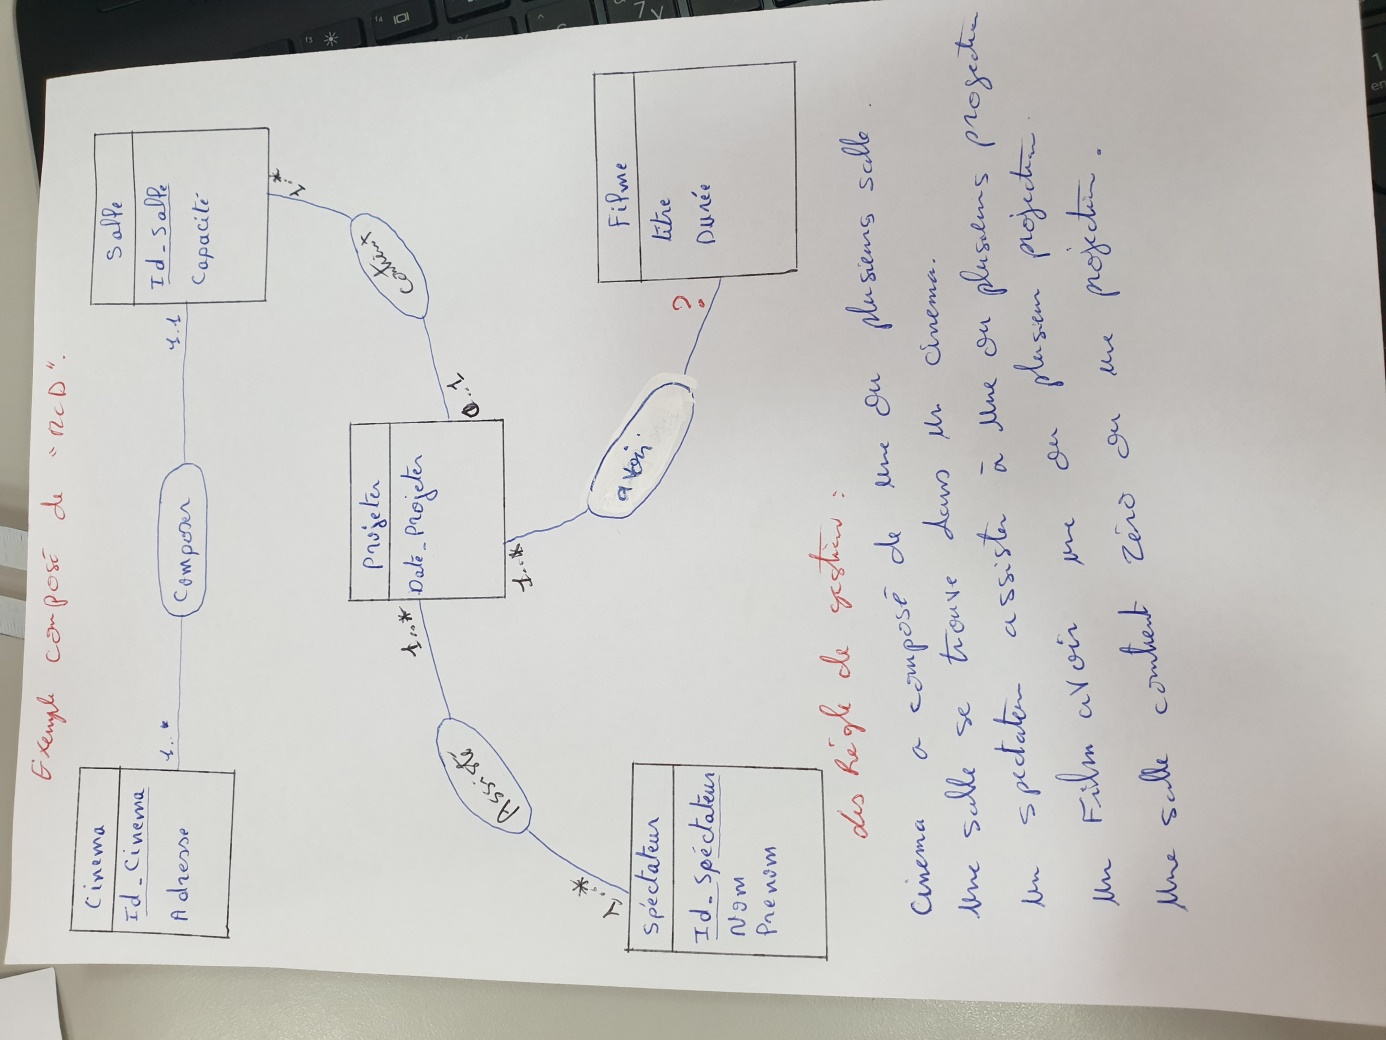 Exemple composé de "MCD".
Cinema
Id_Cinema
Adresse
1..*
Composer
1.1
Salle
Id_Salle
Capacité
1..*
contient
0..1
Projeter
Date_Projeter
1..*
Assisté
1..*
Spéctateur
Id_Spéctateur
Nom
Prenom
1..*
avoir
?
Filme
titre
Durée
des Régle de gestion :
Cinema a composé de une ou plusieurs salle.
Une salle se trouve dans un cinema.
un spectateur assister à une ou plusieurs projection
un Film avoir une ou plusieur projection.
Une salle contient zéro ou une projection.